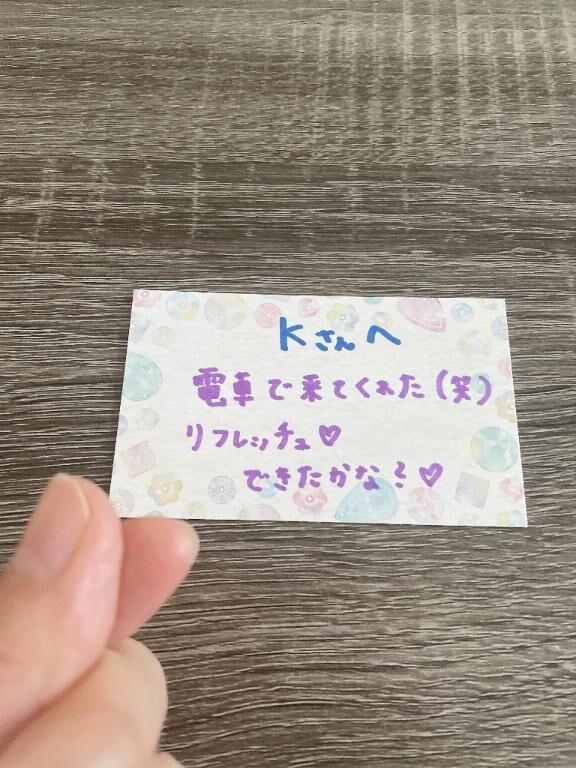 Kさんへ
電車で来てくれた(笑)
リフレッチュ♡
できたかな?♡